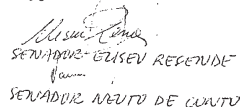 SENADOR ELISEU RESENDE
SENADOR NEUTO DE CONTO